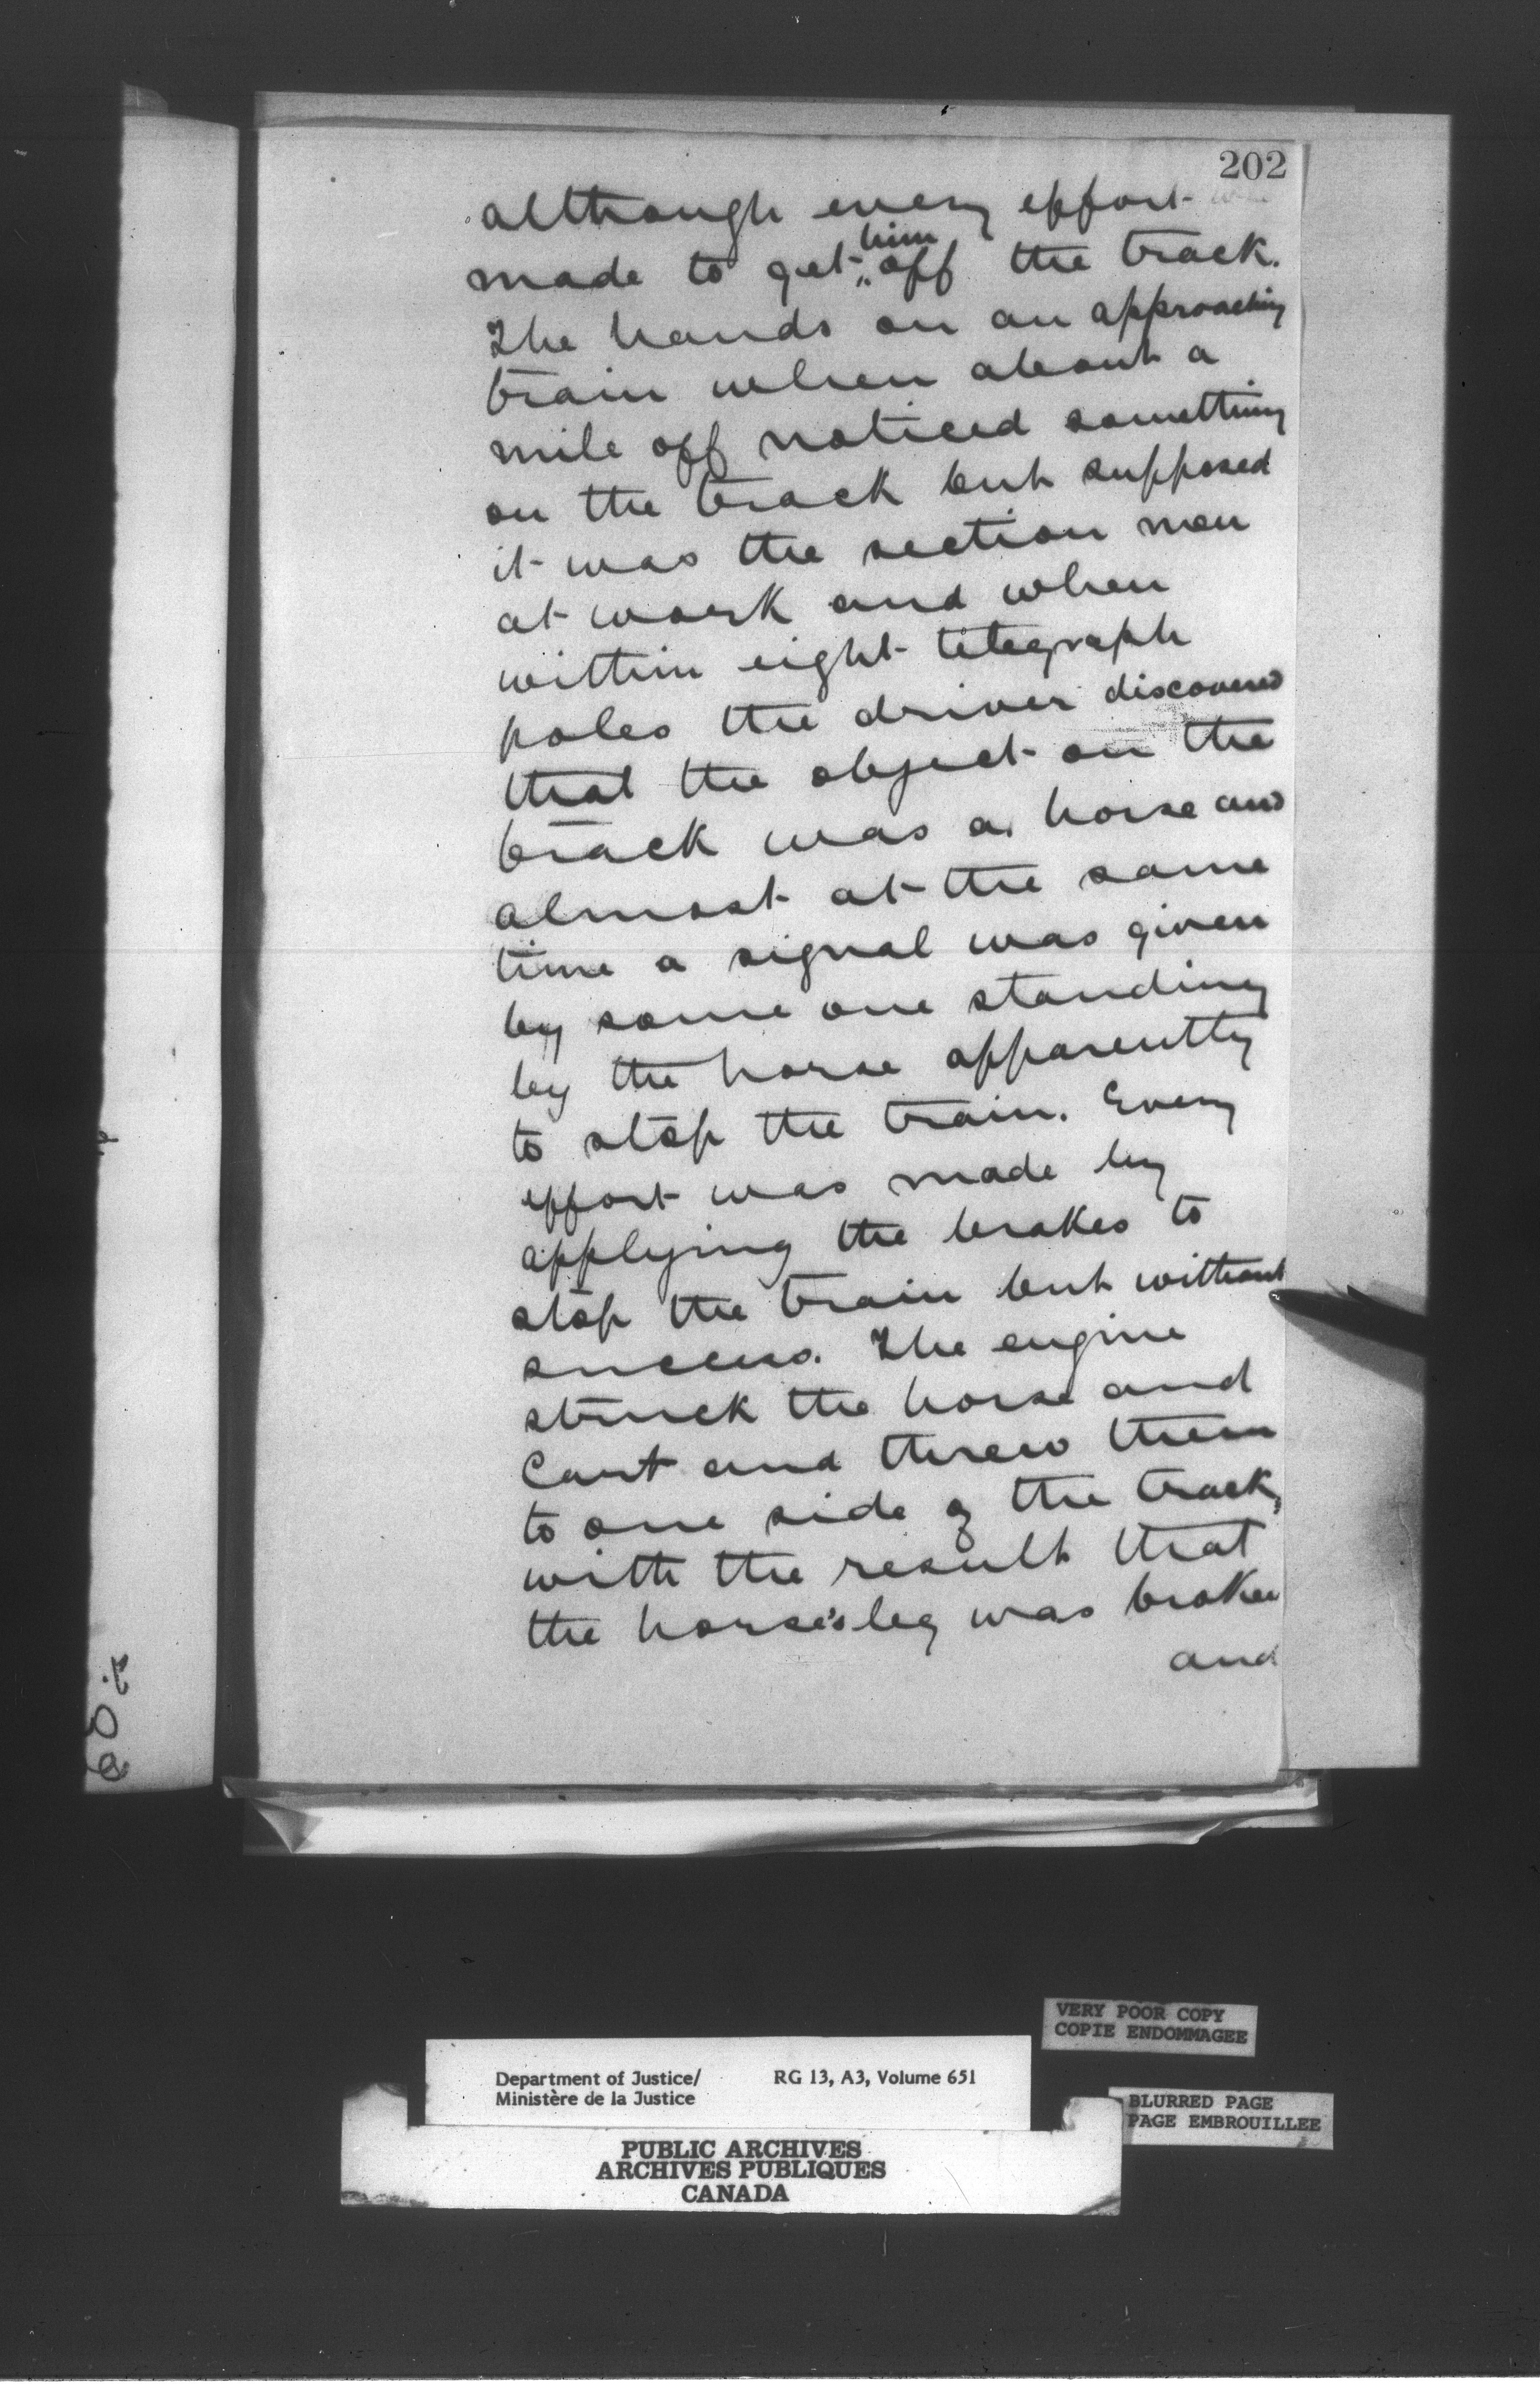 202
although every effort was
made to get him off the track.
The hands on an approaching
train when about a
mile off noticed something
on the track but supposed
it was the section men
at work and when
within eight telegraph
poles the driver discovered
that the object on the
track was a horse and
almost at the same
time a signal was given
by some one standing
by the horse apparently
to stop the train. Every
effort was made by
applying the brakes to
stop the train but without
success. The engine
struck the horse and
Cart and threw them
to one side of the track,
with the result that
the horse's leg was broken
and
VERY POOR COPY
COPIE ENDOMMAGEE
Department of Justice/ RG 13, A3, Volume 651
Ministère de la Justice
BLURRED PAGE
PAGE EMBROUILLEE
PUBLIC ARCHIVES
ARCHIVES PUBLIQUES
CANADA